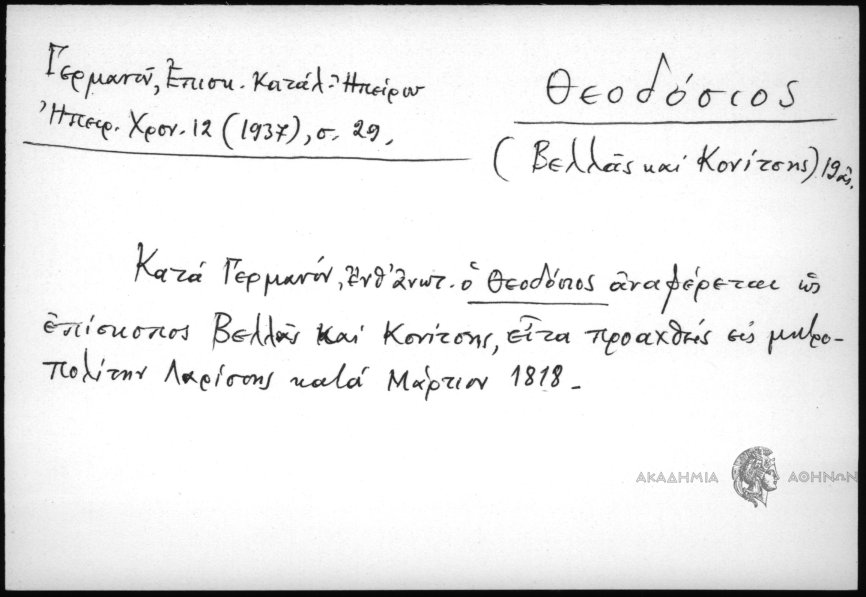 Γερμανοῦ, Ἐπισκ. Κατάλ. Ἠπείρου
Ἠπειρ. Χρον. 12 (1937), σ. 29.
Θεοδόσιος
(Βελλᾶς καὶ Κονίτσης) 19ος.
Κατά Γερμανόν, ἔνθ' ἀνωτ. ὁ Θεοδόσιος ἀναφέρεται ὡς
ἐπίσκοπος Βελλᾶς καί Κονίτσης, εἶτα προαχθείς εἰς μητρο-
πολίτην Λαρίσσης κατά Μάρτιον 1818 -
ΑΚΑΔΗΜΙΑ ΑΘΗΝΩΝ